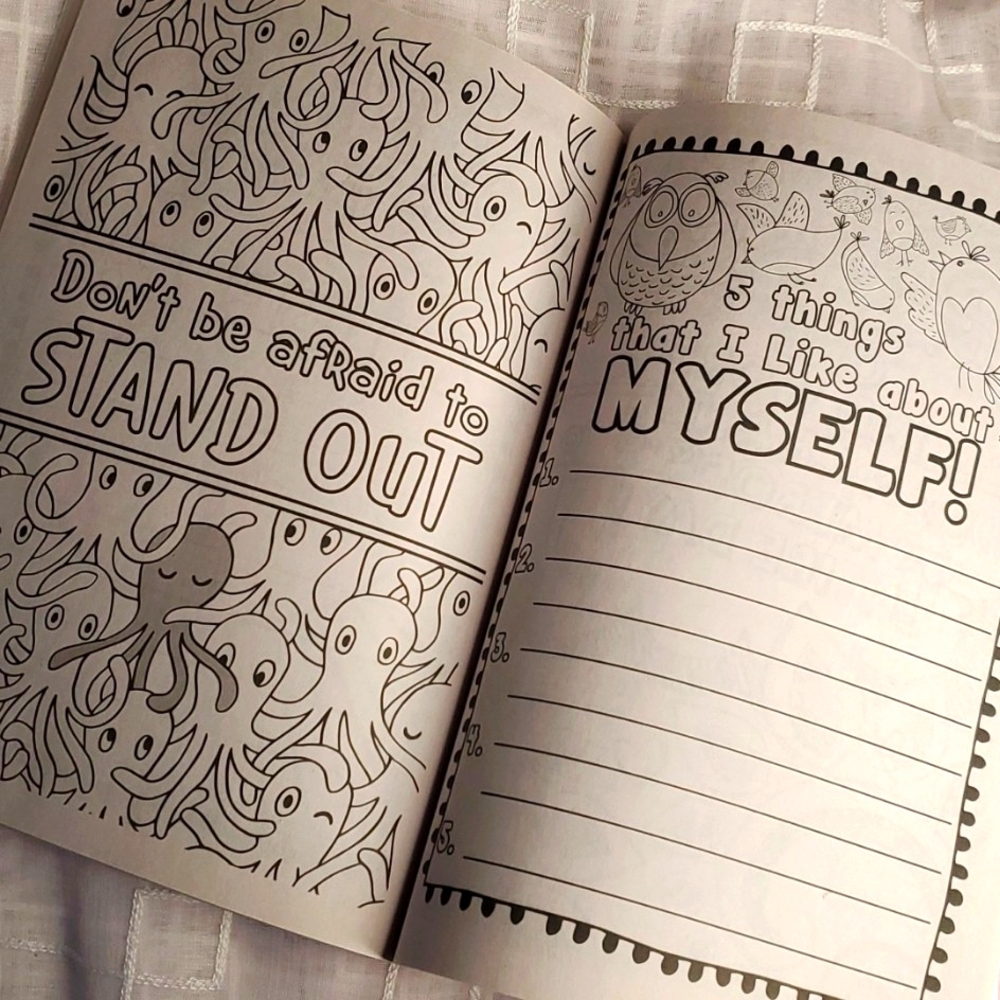 Don't be afraid to
STAND OUT
5 things
that I Like about
MYSELF!
1.
2.
3.
4.
5.